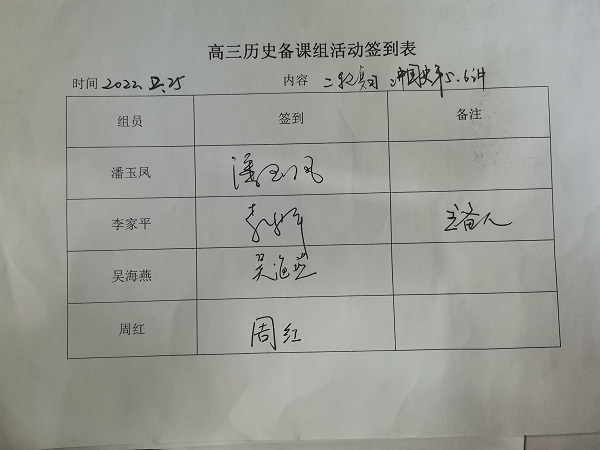 高三历史备课组活动签到表
时间 2022.2.25 内容 二轮复习 中国史第5.6讲
组员 签到 备注
潘玉凤 潘玉凤
李家平 李家平 主备人
吴海燕 吴海燕
周红 周红